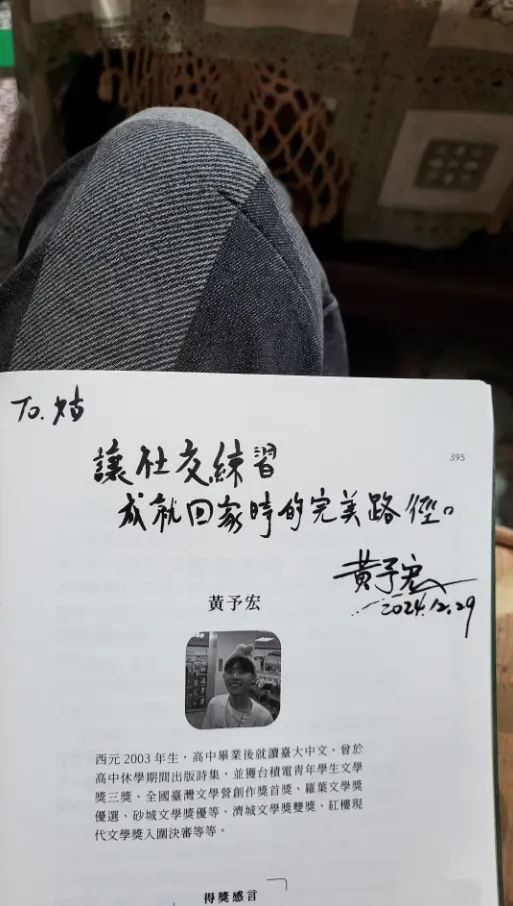 To. 姑
讓社交練習
395
成就回家時的完美路徑。
黃予宏
2024.12.29
黃予宏
西元 2003 年生,高中畢業後就讀臺大中文。曾於
高中休學期間出版詩集,並獲台積電青年學生文學
獎三獎、全國臺灣文學營創作獎首獎、羅葉文學獎
優選、砂城文學獎優等、濟城文學獎雙獎、紅樓現
代文學獎入圍決審等等。
得獎感言